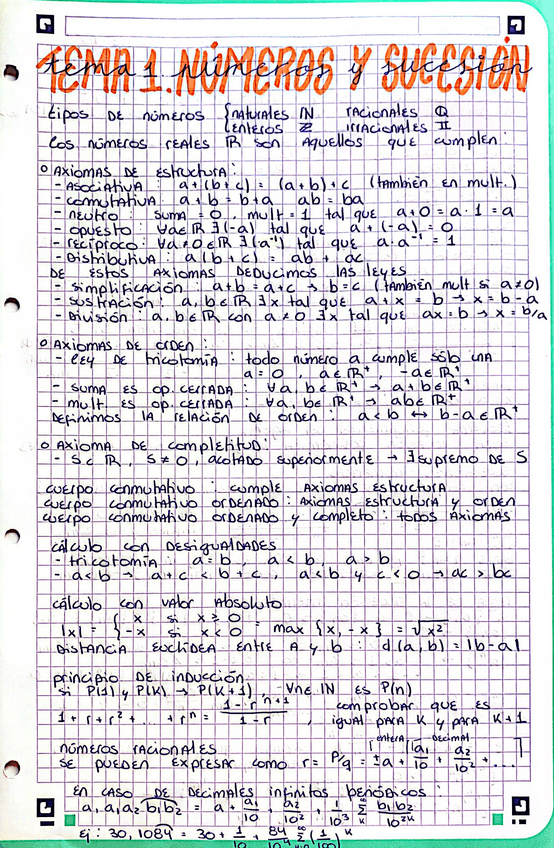 TEMA 1. NÚMEROS Y SUCESIÓN
tema 1. números y sucesión
tipos de números { naturales ℕ racionales ℚ
{ enteros ℤ irracionales 𝕀
los números reales ℝ son aquellos que cumplen:
o Axiomas de estructura:
- Asociativa: a+(b+c) = (a+b)+c (también en mult.)
- conmutativa: a+b = b+a ab = ba
- neutro: suma = 0, mult = 1 tal que a+0 = a·1 = a
- opuesto: ∀a∈ℝ ∃(-a) tal que a+(-a) = 0
- recíproco: ∀a≠0∈ℝ ∃(a⁻¹) tal que a·a⁻¹ = 1
- Distributiva: a(b+c) = ab + ac
de estos axiomas deducimos las leyes
- simplificación: a+b = a+c → b=c (también mult si a≠0)
- sustracción: a,b∈ℝ ∃x tal que a+x = b → x = b-a
- División: a,b∈ℝ con a≠0 ∃x tal que ax=b → x = b/a
o Axiomas de orden:
- ley de tricotomía: todo número a cumple sólo una
a = 0, a∈ℝ⁺, -a∈ℝ⁺
- suma es op. cerrada: ∀a,b∈ℝ⁺ → a+b∈ℝ⁺
- mult es op. cerrada: ∀a,b∈ℝ⁺ → ab∈ℝ⁺
Definimos la relación de orden: a<b ↔ b-a∈ℝ⁺
o Axioma de completitud:
- S⊂ℝ, S≠0, acotado superiormente → ∃supremo de S
cuerpo conmutativo: cumple axiomas estructura
cuerpo conmutativo ordenado: axiomas estructura y orden
cuerpo conmutativo ordenado y completo: todos axiomas
cálculo con desigualdades
- tricotomía: a=b, a<b, a>b
- a<b → a+c < b+c, a<b y c<0 → ac > bc
cálculo con valor absoluto
|x| = { x si x≥0
{ -x si x<0 = max {x,-x} = √x²
Distancia euclídea entre a y b: d(a,b) = |b-a|
principio de inducción
si P(1) y P(k) → P(k+1), ∀n∈ℕ es P(n)
1 + r + r² + ... + rⁿ = (1-rⁿ⁺¹)/(1-r), comprobar que es
igual para k y para k+1
números racionales entera decimal
se pueden expresar como r = p/q = ±a + [a₁/10 + a₂/10² + ...]
En caso de decimales infinitos periódicos:
a, a₁a₂b₁b₂ = a + a₁/10 + a₂/10² + 1/10³ Σ b₁b₂/10²ᵏ
Ej: 30,1084 = 30 + 1/10 + 84/10⁴ Σ (1/100)ᵏ